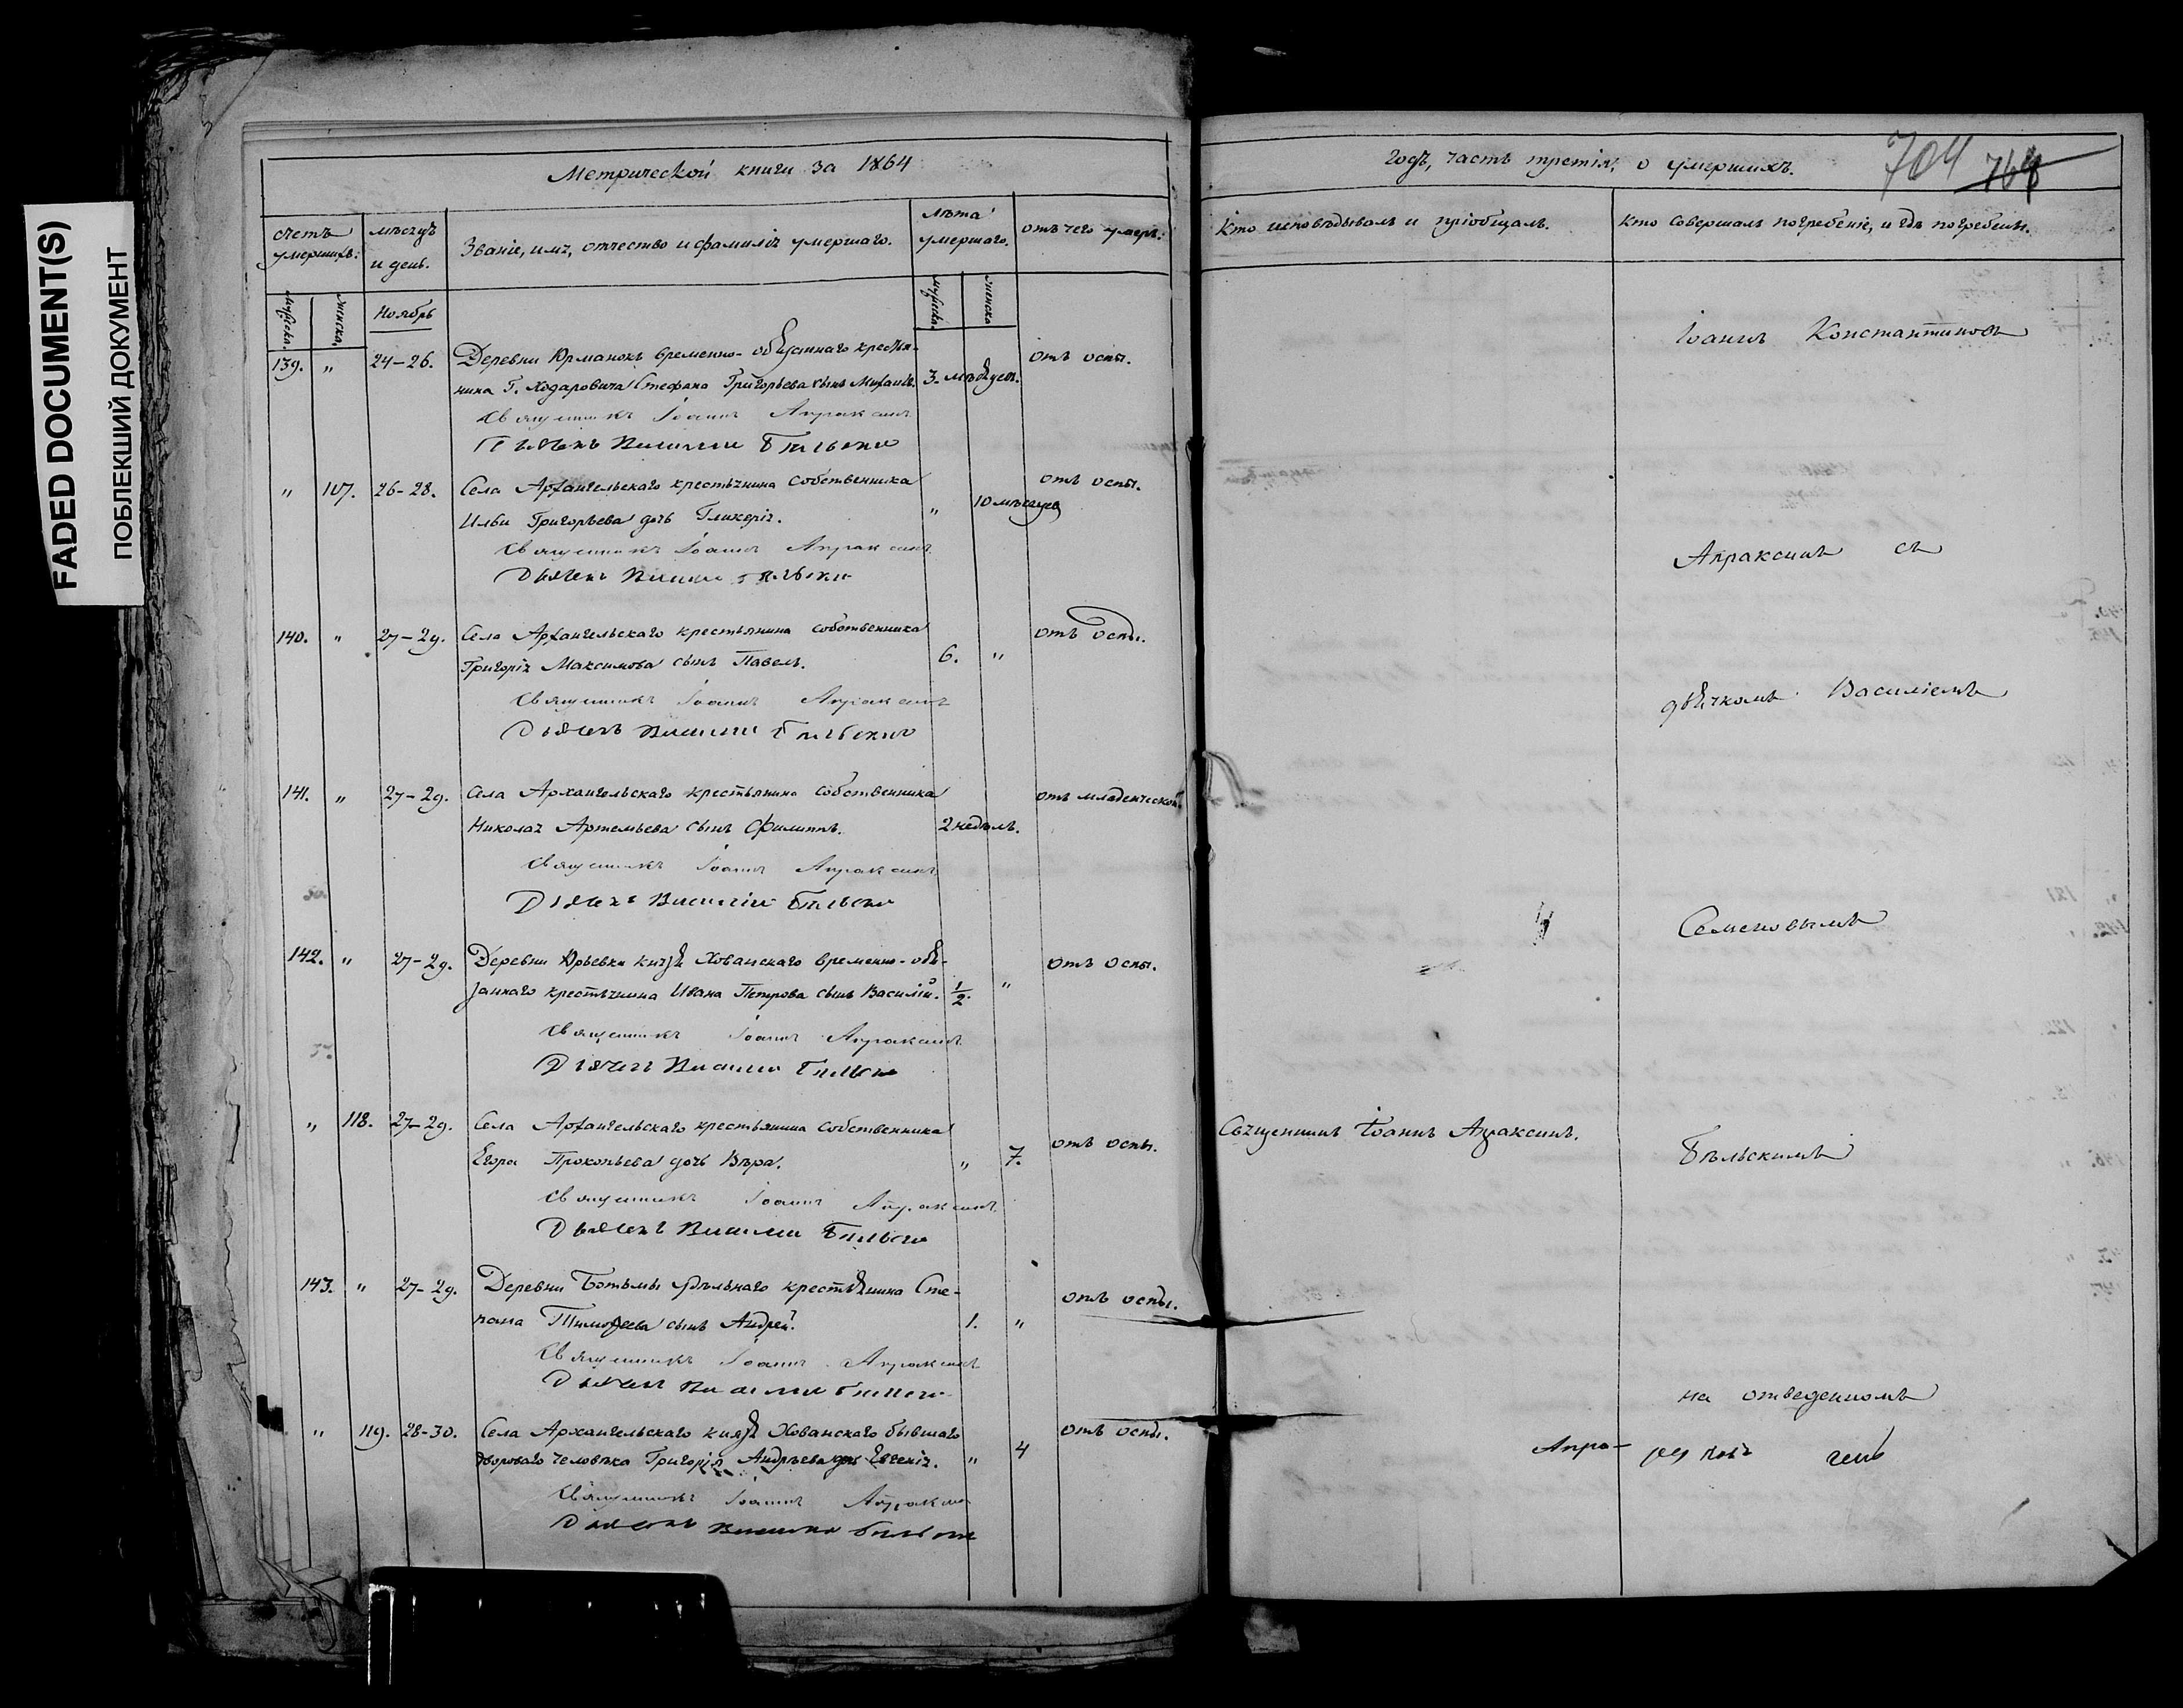 FADED DOCUMENT(S)
ПОБЛЕКШИЙ ДОКУМЕНТ
Метрической книги за 1864
счетъ умершихъ:
мѣсяцъ и день.
Званіе, имя, отчество и фамилія умершаго.
лѣта умершаго.
отъ чего умеръ.
мужска.
женска.
Ноябрь
мужска.
женска
139. " 24-26. Деревни Юрманокъ временно-обязаннаго крестья-
нина Г. Ходаровича Стефана Григорьева сынъ Михаилъ. 3. мѣсяцевъ. отъ оспы.
Священникъ Іоаннъ Апраксинъ
Дьячекъ Василий Бѣльский
" 107. 26-28. Села Архангельскаго крестьянина собственника
Ильи Григорьева дочь Гликерія. " 10 мѣсяцев отъ оспы.
Священникъ Іоаннъ Апраксинъ
Дьячекъ Василий Бѣльский
140. " 27-29. Села Архангельскаго крестьянина собственника
Григорія Максимова сынъ Павелъ. 6. " отъ оспы.
Священникъ Іоаннъ Апраксинъ
Дьячекъ Василий Бѣльский
141. " 27-29. Села Архангельскаго крестьянина собственника
Николая Артемьева сынъ Филиппъ. 2 недѣль. отъ младенческой.
Священникъ Іоаннъ Апраксинъ
Дьячекъ Василий Бѣльский
142. " 27-29. Деревни Юрьевки князя Хованскаго временно-обя-
заннаго крестьянина Ивана Петрова сынъ Василій. 1/2. " отъ оспы.
Священникъ Іоаннъ Апраксинъ
Дьячекъ Василий Бѣльский
" 118. 27-29. Села Архангельскаго крестьянина собственника
Егора Прокопьева дочь Вѣра. " 7. отъ оспы.
Священникъ Іоаннъ Апраксинъ
Дьячекъ Василий Бѣльский
143. " 27-29. Деревни Ботьмы удѣльнаго крестьянина Сте-
пана Тимофеева сынъ Андрей. 1. " отъ оспы.
Священникъ Іоаннъ Апраксинъ
Дьячекъ Василий Бѣльский
" 119. 28-30. Села Архангельскаго князя Хованскаго бывшаго
двороваго человѣка Григорія Андреева дочь Евгенія. " 4 отъ оспы.
Священникъ Іоаннъ Апраксинъ
Дьячекъ Василий Бѣльский
годъ, часть третія, о умершихъ.
704 764
Кто исповѣдывалъ и пріобщалъ.
Кто совершалъ погребеніе, и гдѣ погребены.
Іоаннъ Константиновъ
Апраксинъ съ
дьячкомъ Василіемъ
Семеновымъ
Священникъ Іоаннъ Апраксинъ.
Бѣльскимъ
на отведенномъ
Апра-